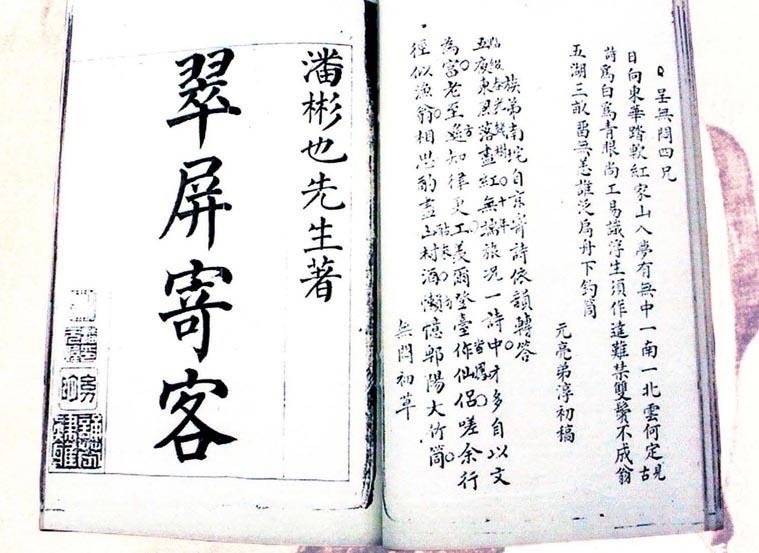 呈無悶四兄
日向東華踏軟紅家山入夢有無中一南一北雲何定見古
詩為白為青眼尚工易識浮生須作達難禁雙鬢不成翁
五湖三畝畱無恙誰泛扁舟下釣筒
元亮弟淳初稿
族弟南垞自京寄詩依韻轉答
五夜東風落盡紅無端旅况一詩中才多自以文
為富老至逾知律更工羡爾登臺作仙侶嗟余行
徑似漁翁相思酌盡山村酒懶憶郫陽大竹筒
無悶初草
潘彬也先生著
翠屏寄客